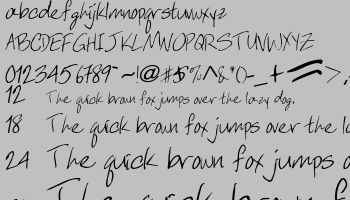 abcdefghijklmnopqrstuvwxyz
ABCDEFGHIJKLMNOPQRSTUVWXYZ
0123456789~~!@#$%^&*()-_+=>,
12 The quick brown fox jumps over the lazy dog.
18 The quick brown fox jumps over the la
24 The quick brown fox jumps o
The quick brown f